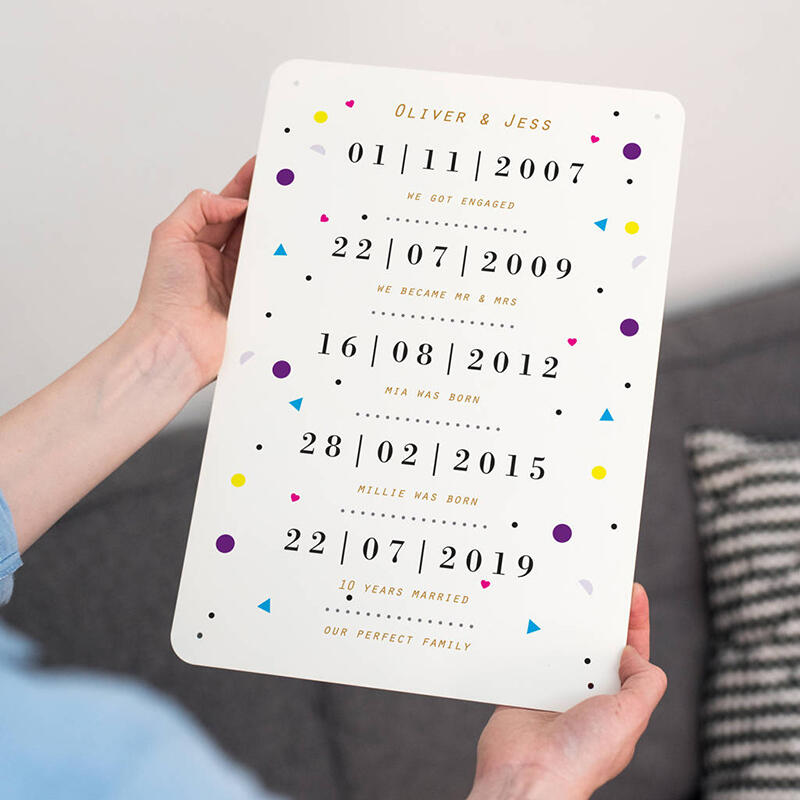 OLIVER & JESS
01|11|2007
WE GOT ENGAGED
22|07|2009
WE BECAME MR & MRS
16|08|2012
MIA WAS BORN
28|02|2015
MILLIE WAS BORN
22|07|2019
10 YEARS MARRIED
OUR PERFECT FAMILY